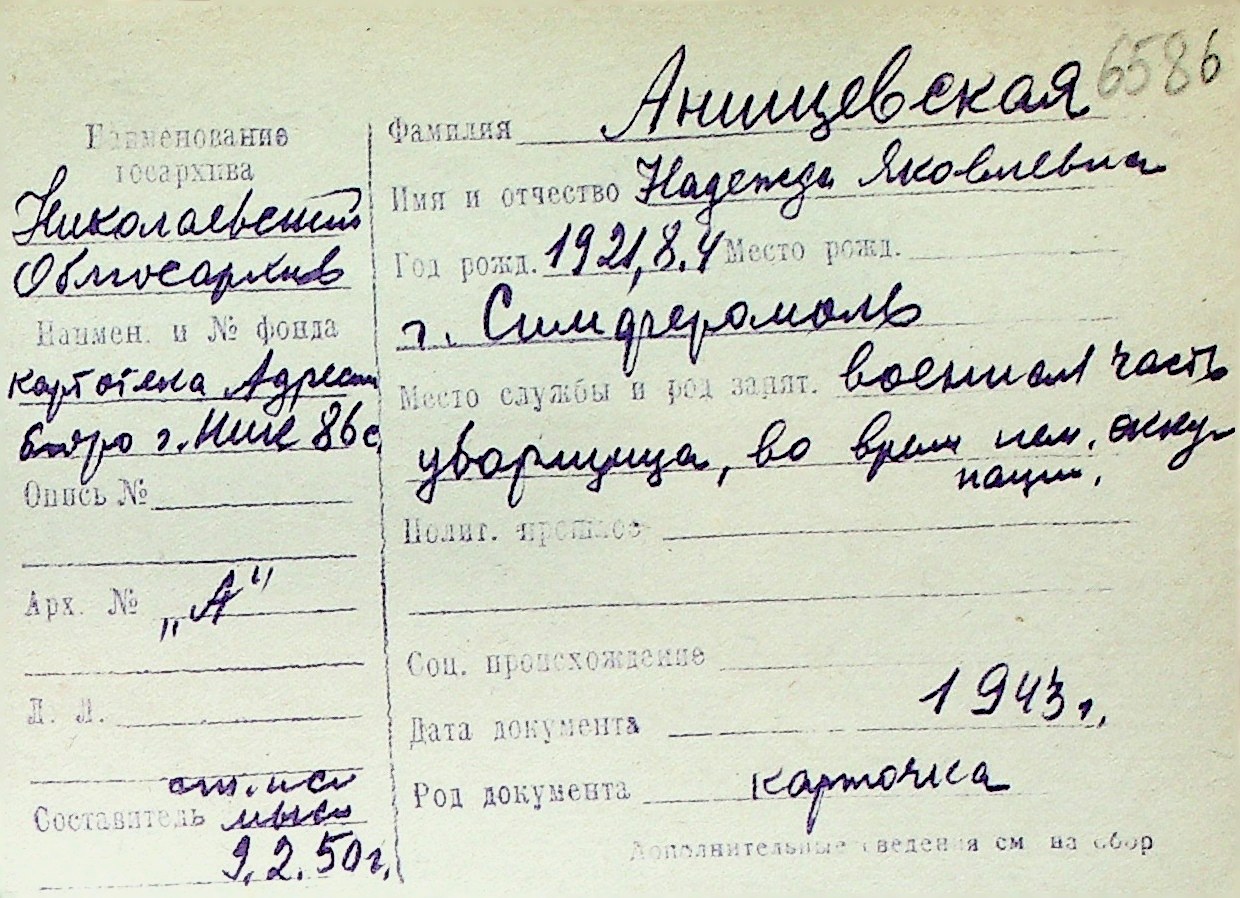 6586
Наименование
госархива
Николаевский
Облгосархив
Наимен. и № фонда
картотека Адресн
бюро г. Ник 86с
Опись №
Арх. № „А“
Л. Л.
Составитель
9.2.50г.
Фамилия Анищевская
Имя и отчество Надежда Яковлевна
Год рожд. 1921, 8.4 Место рожд.
г. Симферополь
Место службы и род занят. военная часть
уборщица, во время нем. окку-
пации.
Полит. прошлое
Соц. происхождение
Дата документа 1943 г.
Род документа карточка
Дополнительные сведения см на обор